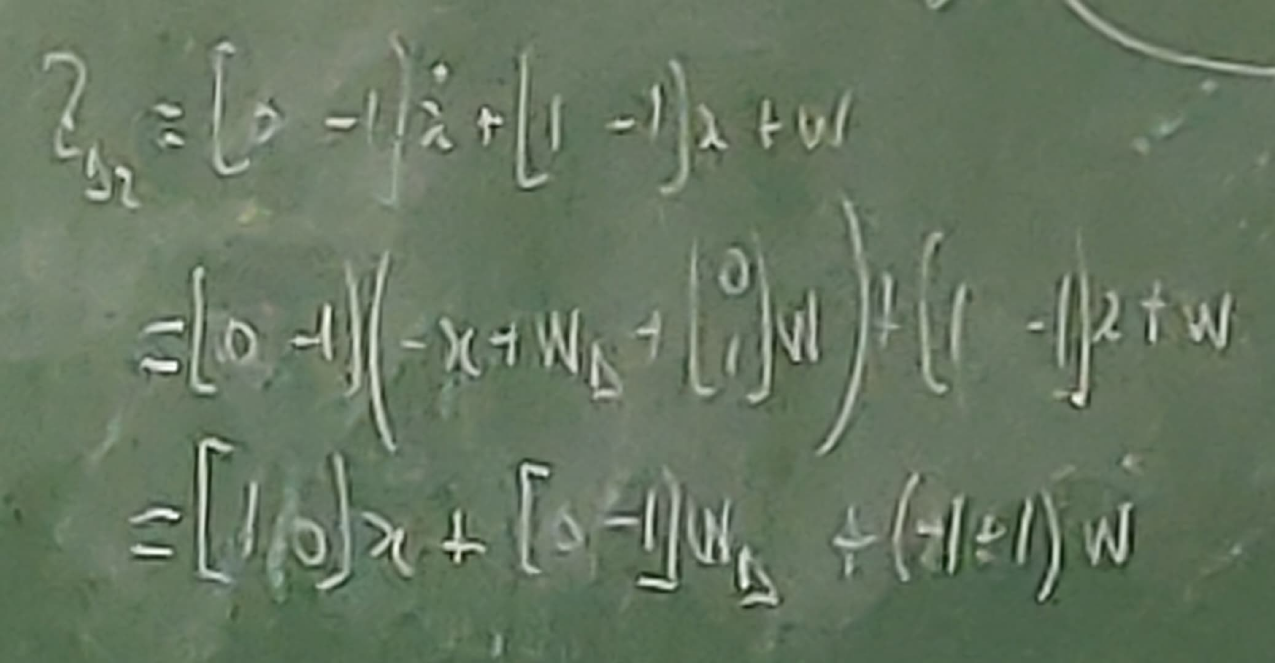 z_Δ2 = [0 -1] ẋ + [1 -1] x + w
= [0 -1] (-x + w_Δ + [0 1] w) + [1 -1] x + w
= [1 0] x + [0 -1] w_Δ + (-1+1) w